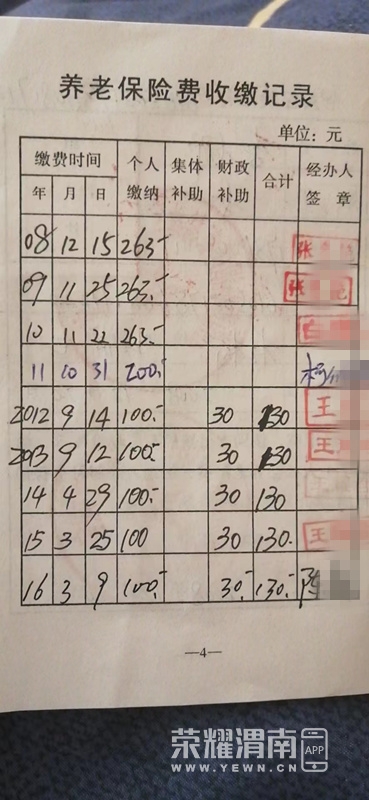 养老保险费收缴记录
单位：元
缴费时间 个人缴纳 集体补助 财政补助 合计 经办人签章
年 月 日
08 12 15 263.- 张
09 11 25 263.- 张
10 11 22 263.-
11 10 31 200.-
2012 9 14 100.- 30 130 王
2013 9 12 100.- 30 130 王
14 4 29 100.- 30 130 王
15 3 25 100 30 130. 王
16 3 9 100.- 30.- 130.-
—4—
荣耀渭南 APP
WWW.YEWN.CN